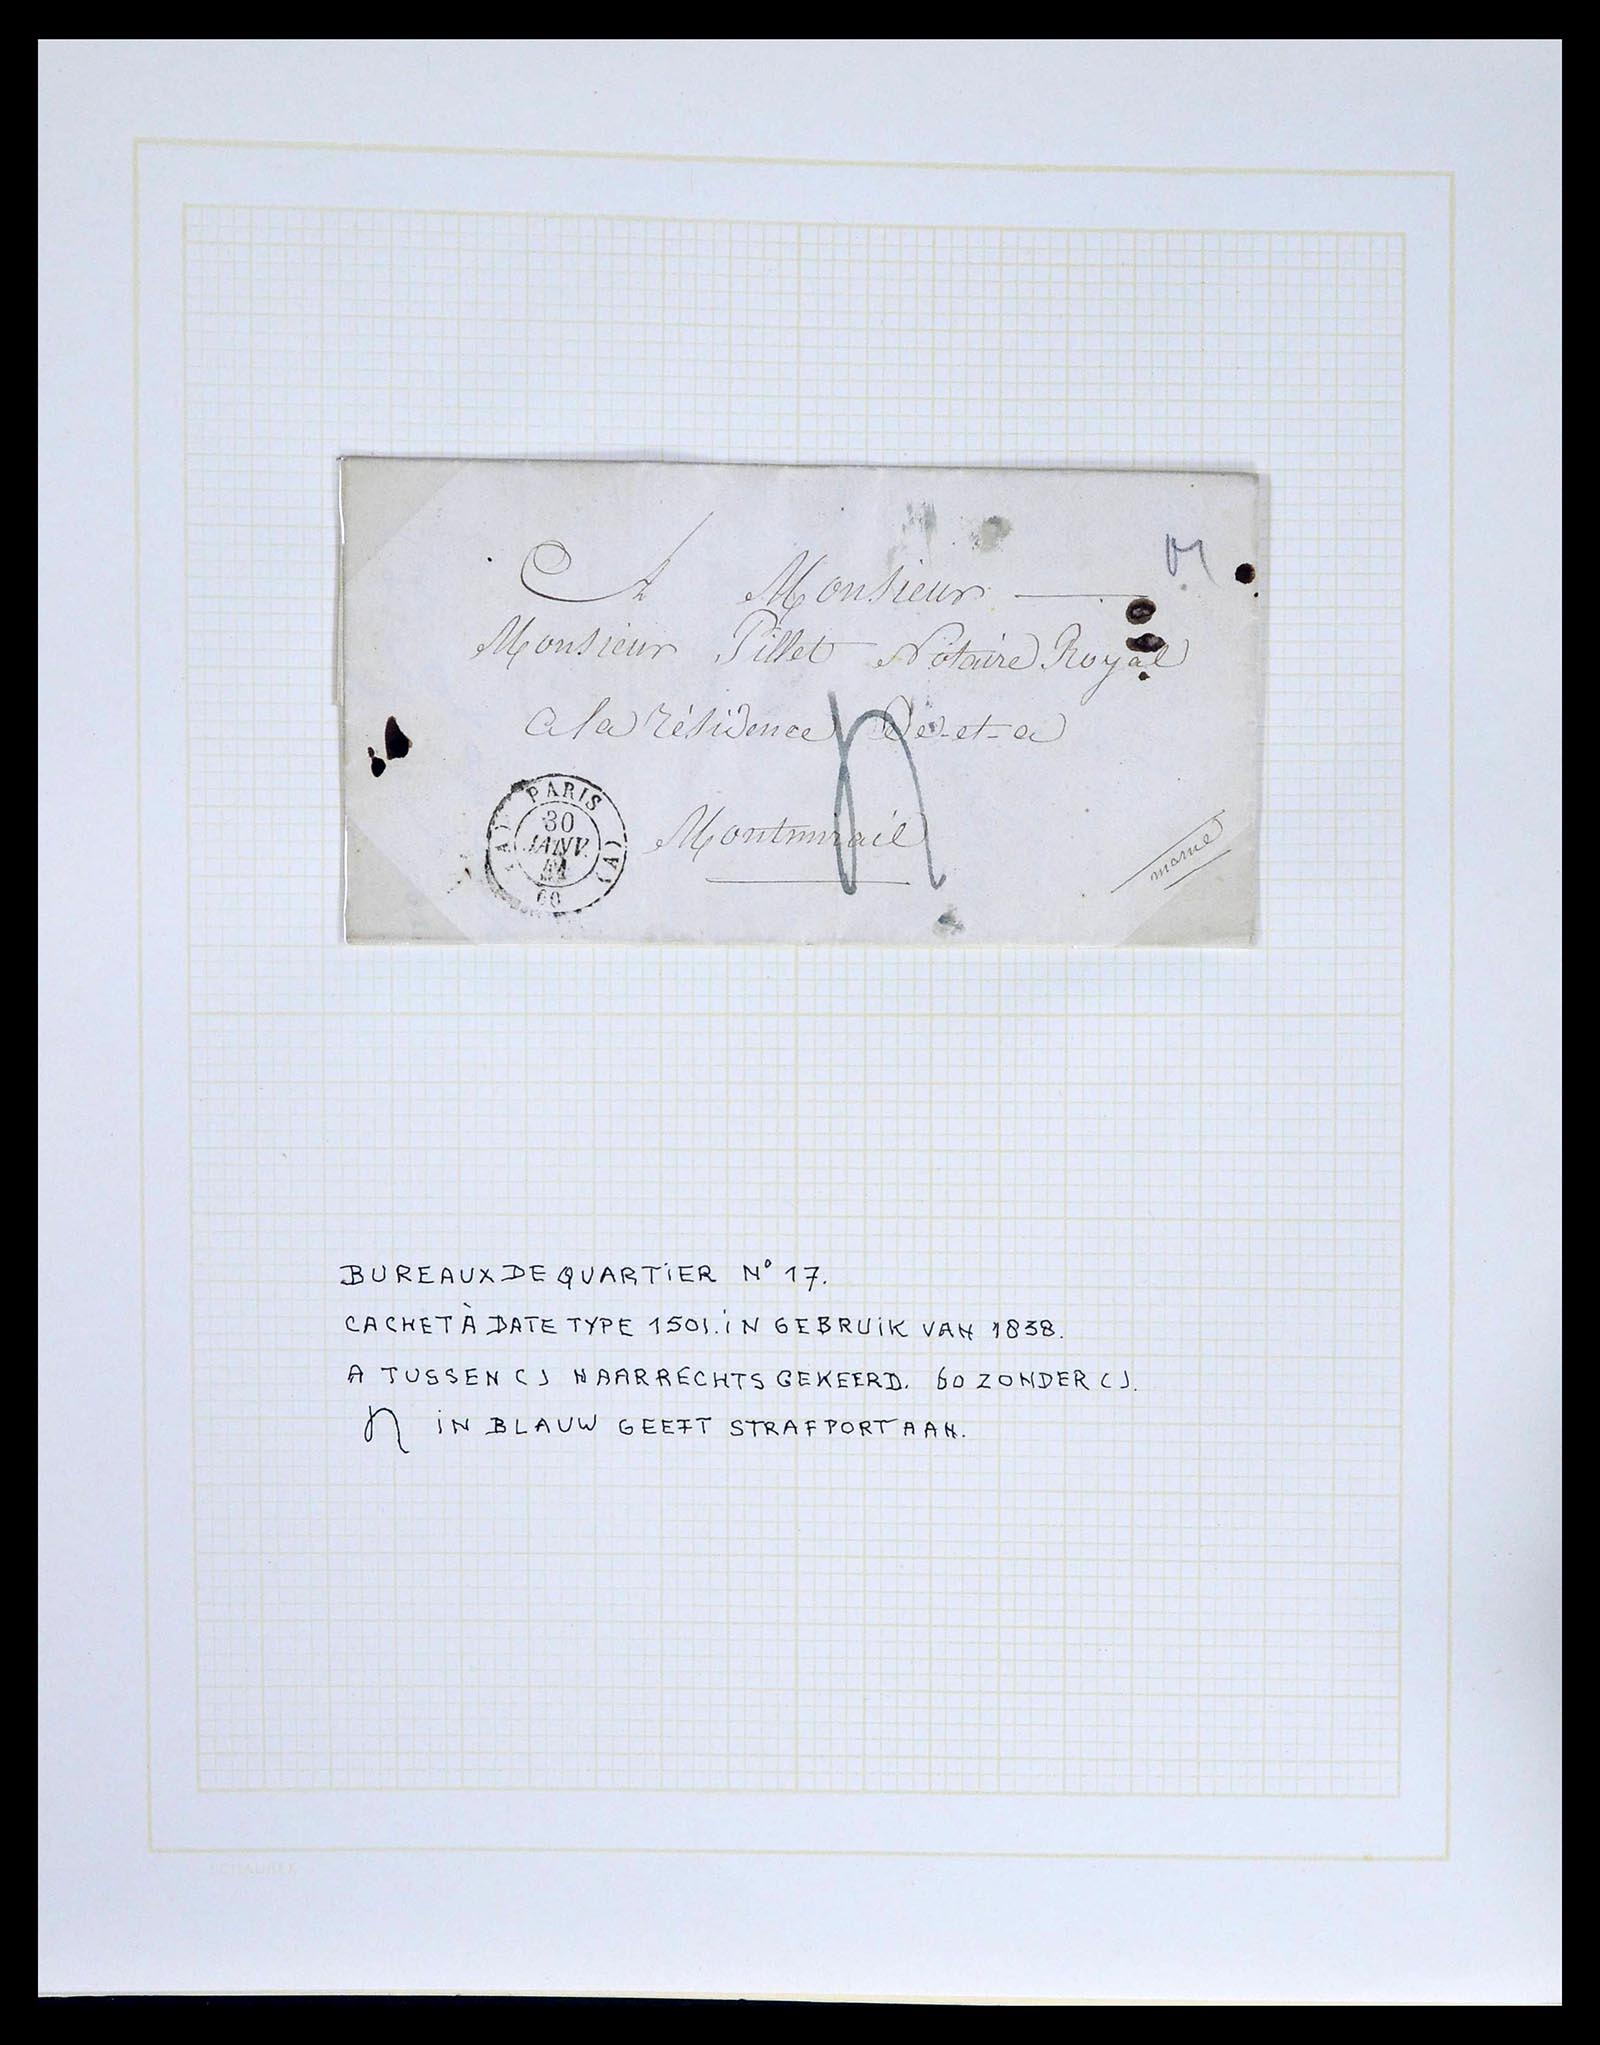 A Monsieur
Monsieur Pillet Notaire Royal
a la résidence de-et-a
Montmirail
marne
n
PARIS
(A) (A)
30
JANV.
60
BUREAUX DE QUARTIER N° 17.
CACHET À DATE TYPE 1501. IN GEBRUIK VAN 1838.
A TUSSEN ( ) NAAR RECHTS GEKEERD. 60 ZONDER ( ).
n IN BLAUW GEEFT STRAFPORT AAN.
SCHAUBEK